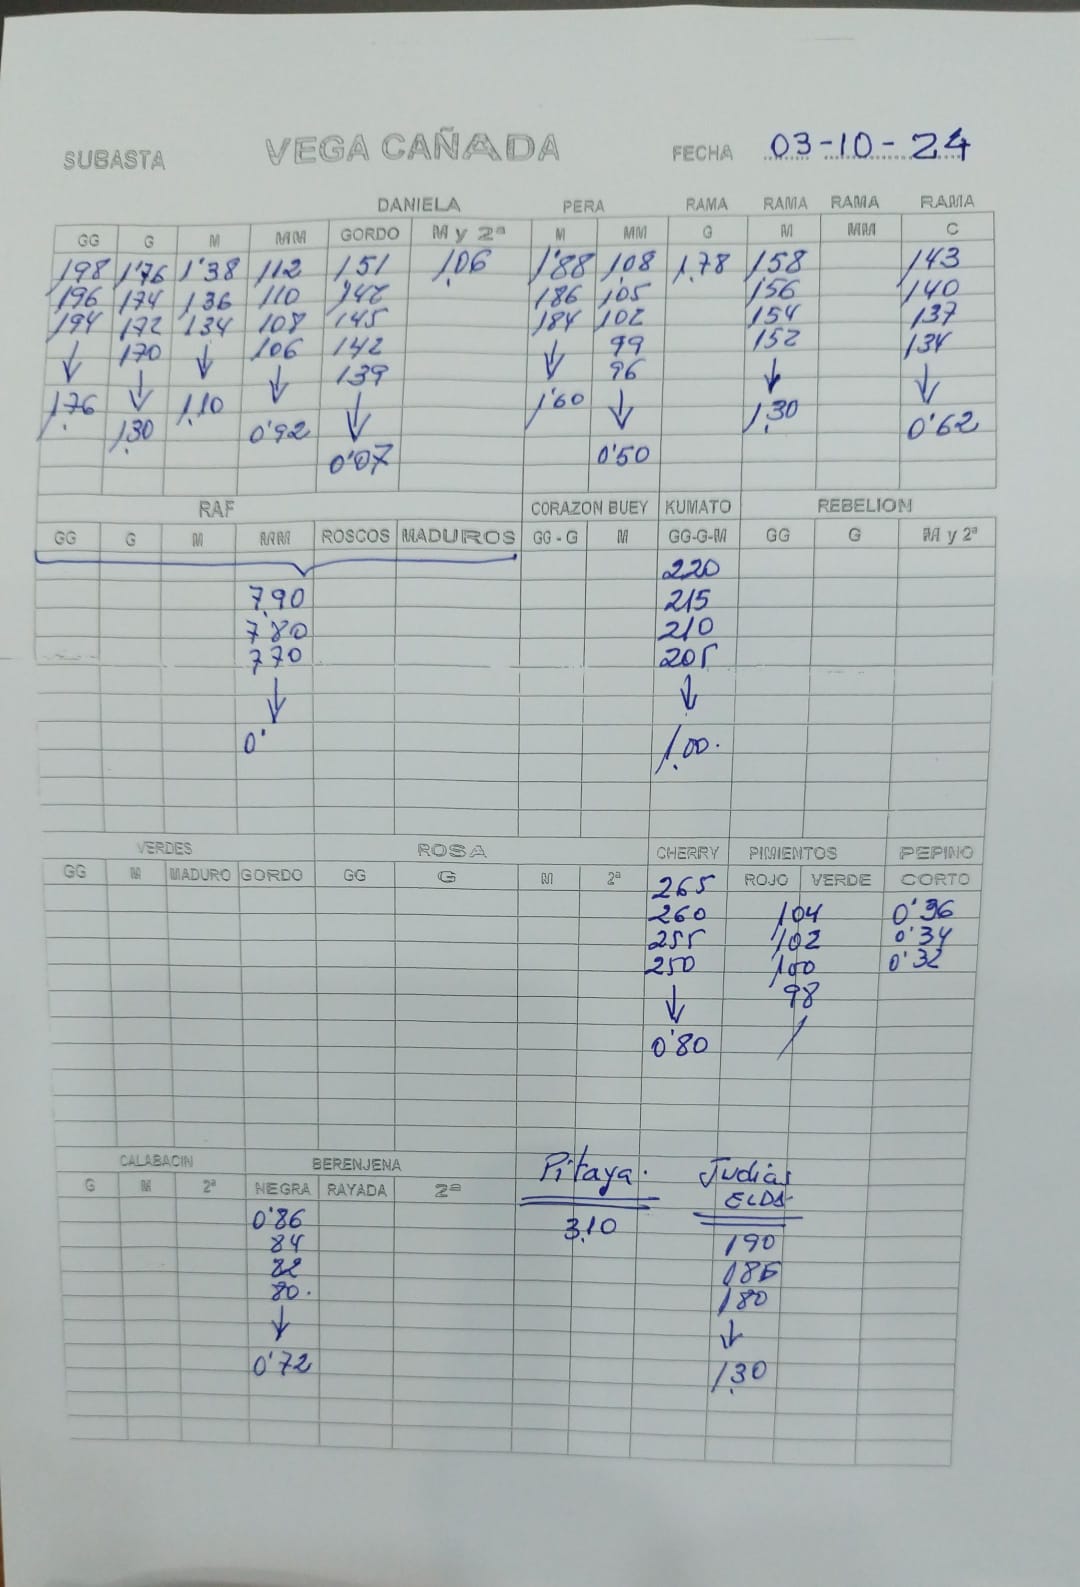 SUBASTA VEGA CAÑADA FECHA 03-10-24
DANIELA PERA RAMA RAMA RAMA RAMA
GG G M MM GORDO M y 2ª M MM G M MM C
198 1'76 1'38 112 151 1,06 1'88 108 1,78 158 143
196 174 136 110 148 186 105 156 140
194 172 134 108 145 184 102 154 137
↓ 170 ↓ 106 142 ↓ 99 152 134
↓ ↓ 139 96 ↓ ↓
1,76 1,30 1,10 0'92 ↓ 1'60 ↓ 1,30 0'62
0'07 0'50
RAF CORAZON BUEY KUMATO REBELION
GG G M MM ROSCOS MADUROS GG - G M GG-G-M GG G M y 2ª
220
7,90 215
7'80 210
770 205
↓ ↓
0' 1,00.
VERDES ROSA CHERRY PIMIENTOS PEPINO
GG M MADURO GORDO GG G M 2ª ROJO VERDE CORTO
265
260 104 0'36
255 102 0'34
250 100 0'32
↓ 98
0'80 /
CALABACIN BERENJENA Pitaya. Judias
G M 2ª NEGRA RAYADA 2ª ELDA
0'86 3,10 190
84 185
82 180
80. ↓
↓ 1,30
0'72